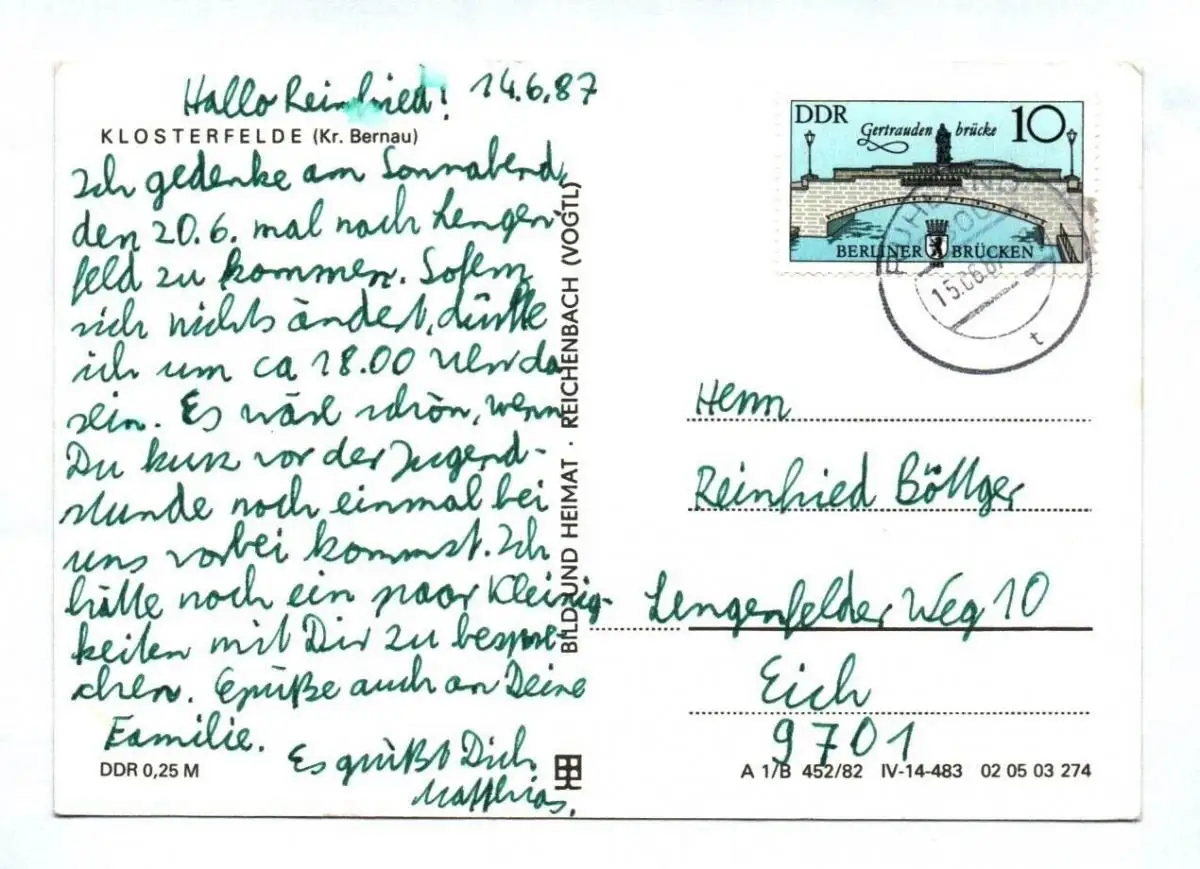 Hallo Reinfried! 14.6.87
KLOSTERFELDE (Kr. Bernau)
Ich gedenke am Sonnabend,
den 20.6. mal nach Lengen-
feld zu kommen. Sofern
sich nichts ändert, dürfte
ich um ca 18.00 Uhr da
sein. Es wäre schön, wenn
Du kurz vor der Jugend-
stunde noch einmal bei
uns vorbei kommst. Ich
hätte noch ein paar Kleinig-
keiten mit Dir zu bespre-
chen. Grüße auch an Deine
Familie.
Es grüßt Dich
Matthias.
DDR 0,25 M
BILD UND HEIMAT · REICHENBACH (VOGTL)
DDR 10
Gertraudenbrücke
BERLINER BRÜCKEN
15.06.87
t
Herrn
Reinfried Böttger
Lengenfelder Weg 10
Eich
9701
A 1/B 452/82 IV-14-483 02 05 03 274